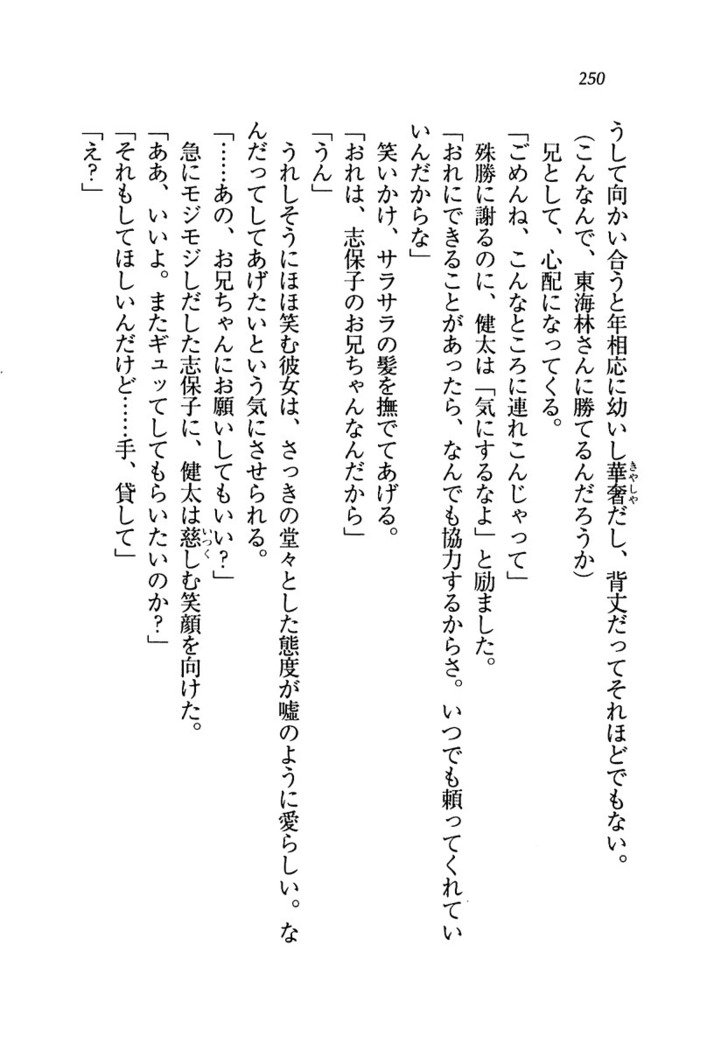 250
うして向かい合うと年相応に幼いし華奢だし、背丈だってそれほどでもない。
きゃしゃ
（こんなんで、東海林さんに勝てるんだろうか）
兄として、心配になってくる。
「ごめんね、こんなところに連れこんじゃって」
殊勝に謝るのに、健太は「気にするなよ」と励ました。
「おれにできることがあったら、なんでも協力するからさ。いつでも頼ってくれてい
いんだからな」
笑いかけ、サラサラの髪を撫でてあげる。
「おれは、志保子のお兄ちゃんなんだから」
「うん」
うれしそうにほほ笑む彼女は、さっきの堂々とした態度が嘘のように愛らしい。な
んだってしてあげたいという気にさせられる。
「……あの、お兄ちゃんにお願いしてもいい？」
急にモジモジしだした志保子に、健太は慈しむ笑顔を向けた。
いつく
「ああ、いいよ。またギュッてしてもらいたいのか？」
「それもしてほしいんだけど……手、貸して」
「え？」